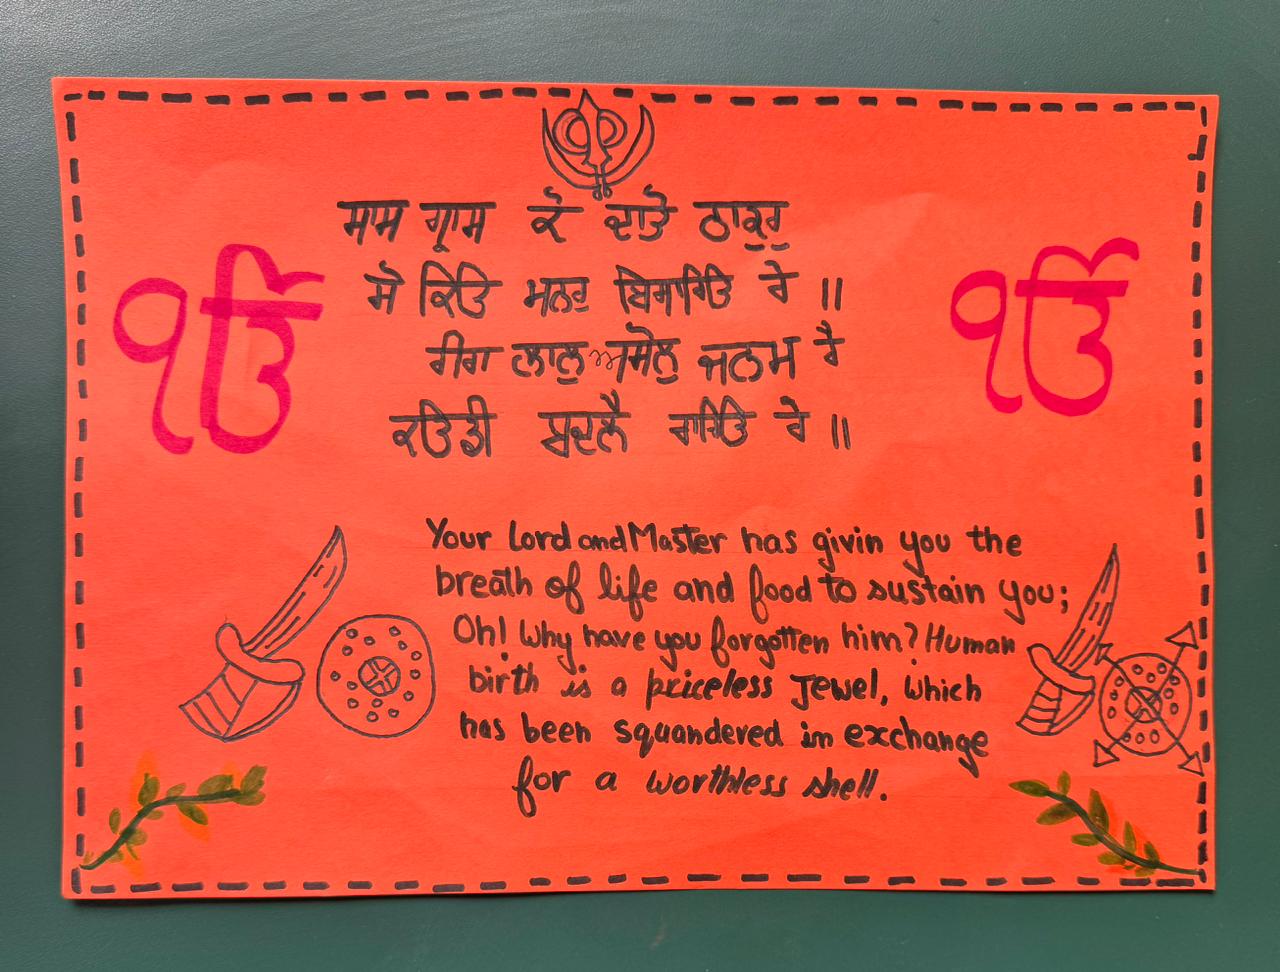 ਸਾਸ ਗ੍ਰਾਸ ਕੋ ਦਾਤੋ ਠਾਕੁਰੁ
ੴ
ਸੋ ਕਿਉ ਮਨਹੁ ਬਿਸਾਰਿਓ ਰੇ ॥
ੴ
ਲਾਲੁ ਅਮੋਲੁ ਜਨਮ ਹੈ
ਕਉਡੀ ਬਦਲੈ ਹਾਰਿਓ ਰੇ ॥
Your Lord and Master has givin you the
breath of life and food to sustain you;
Oh! Why have you forgotten him? Human
birth is a priceless Jewel, which
has been squandered in exchange
for a worthless shell.